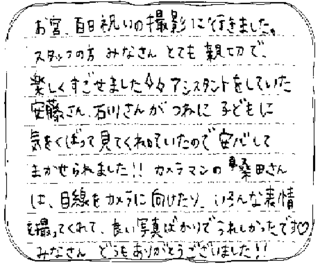 お宮、百日祝いの撮影に行きました。
スタッフの方 みなさん とても 親切で、
楽しくすごせました♪♪アシスタントをしていた
安藤さん、石川さんが つねに 子どもに
気をくばって見てくれていたので安心して
まかせられました!! カメラマンの 桑田さん
は、目線をカメラに向けたり、いろんな表情
を撮ってくれて、良い写真ばかりでうれしかったです♡
みなさん どうもありがとうございました!!